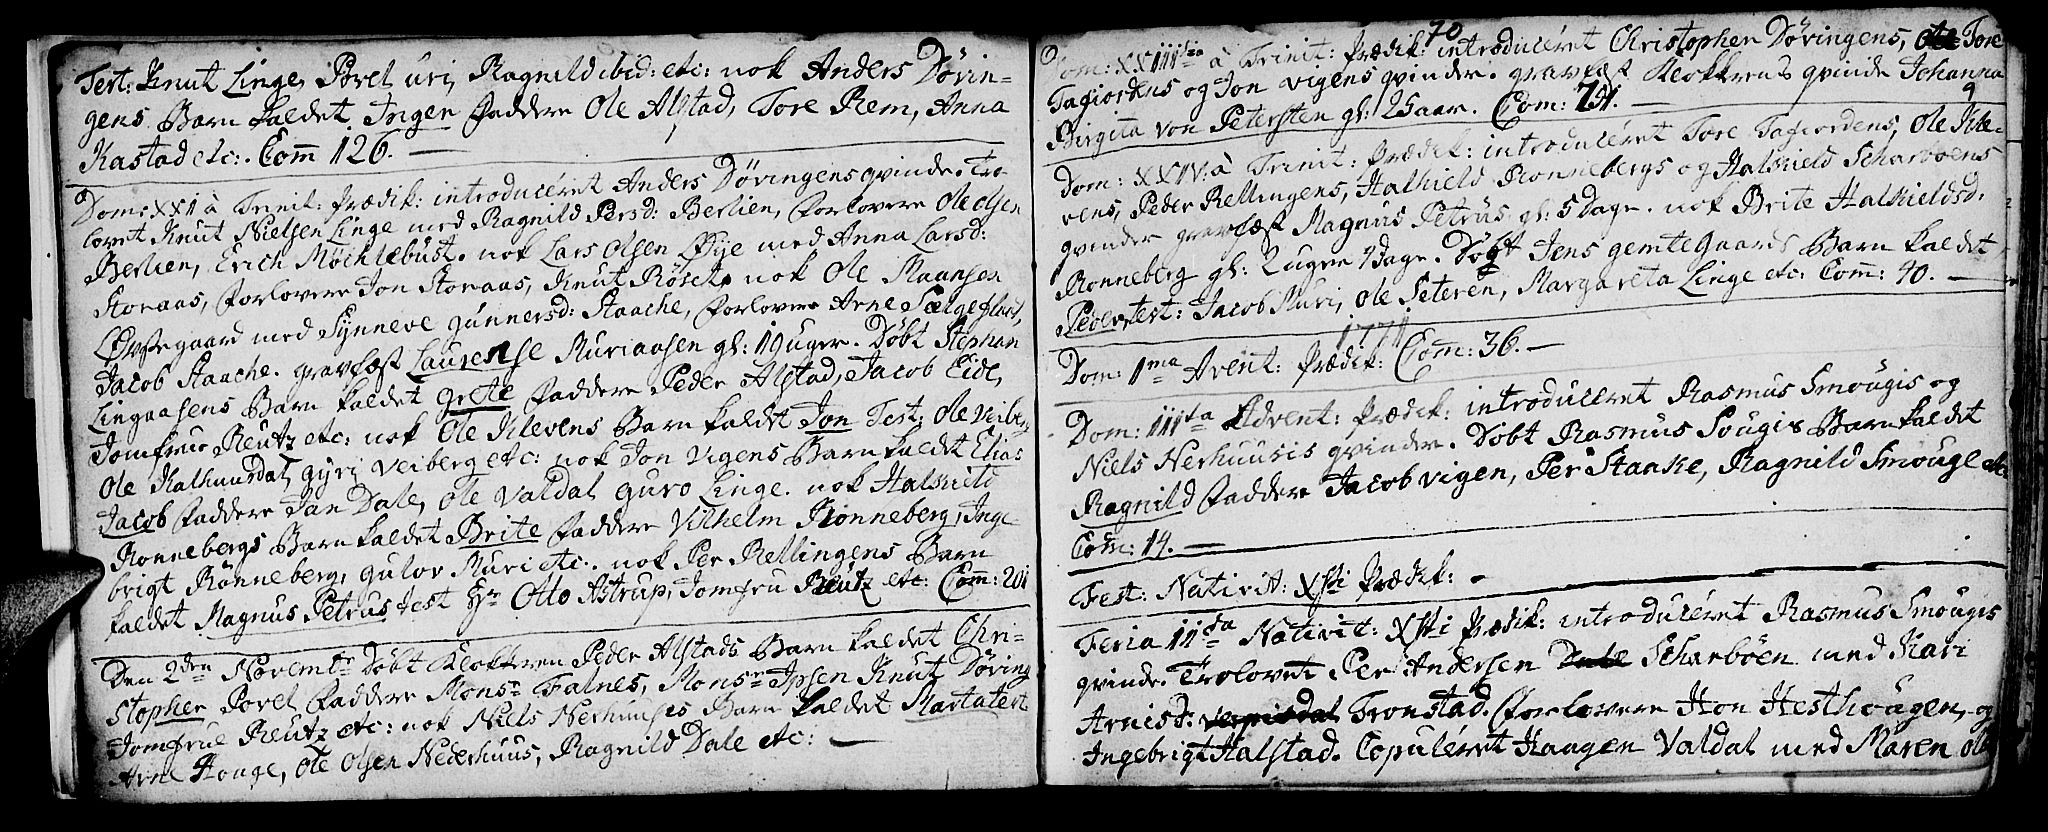 Test: Knut Linge, Povel Uri, Ragnild ibid: etc: nok Anders Døvin-
gens Barn kaldet Ingen Faddere Ole Alstad, Tore Rem, Anna
Kastad etc:. Com̄ 126. —
Dom: XXI à Trinit: Prædik: introduceret Anders Døvingens qvinde. Tro-
lovet Knut Nielsen Linge med Ragnild Persd: Berlien, Forlovere Ole Olsen
Berlien, Erich Møchlebust. nok Lars Olsen Øye med Anna Larsd:
Storaas, Forlovere Jon Storaas, Knut Røset, nok Ole Maansen
Øvstegaard med Synneve Gunnersd: Staache, Forlovere Arne Sælgeflaat,
Jacob Staache. gravfæst Laurense Muriaasen gl: 19 uger. Døbt Stephan
Lingaasens Barn kaldet Grete Faddere Peder Alstad, Jacob Eide,
Jomfrue Reutz etc: nok Ole Klevens Barn kaldet Jon Test: Ole Veiberg
Ole Kalhuusdal, Gyri Veiberg etc: nok Jon Vigens Barn kaldet Elias
Jacob Faddere Jan Dale, Ole Valdal Guro Linge. nok Halskield
Ronnebergs Barn kaldet Brite Faddere Vilhelm Rønneberg, Inge-
brigt Rønneberg, Gulov Muri etc. nok Per Rellingens Barn
kaldet Magnus Petrus test Hr Otto Astrup, Jomfru Reutz etc: Com̄: 201
Den 2den Novembr Døbt Klokkeren Peder Alstads Barn kaldet Chri-
stopher Povel Faddere Monsr Falnes, Monsr Ipsen Knut Døving
Jomfrue Reutz etc: nok Niels Nerhuuses Barn kaldet Marta test
Arne Houge, Ole Olsen Nederhuus, Ragnild Dale etc: —
70
Dom: XXIIItia à Trinit: Prædik: introduceret Christopher Døvingens, Ole Tore
Tafiordens og Jon Vigens qvinder. gravfæst Klokkerens qvinde Johanna
Birgitta von Petersten gl: 25 aar. Com: 751. —
Dom: XXIV: à Trinit: Prædik: introduceret Tore Tafiordens, Ole Kle-
vens, Peder Rellingens, Halskield Ronnebergs og Halskield Scharboens
qvinder gravfæst Magnus Petrus gl: 5 Dage. nok Brite Halskieldsd.
Ronneberg gl: 2 uger 1 Dage. Døbt Jens Gemtegaards Barn kaldet
Peder, test: Jacob Muri, Ole Seteren, Margareta Linge etc: Com̄: 40. —
1771
Dom: 1ma Avent: Prædik: Com̄: 36. —
Dom: IIItia Advent: Prædik: introduceret Rasmus Smougis og
Niels Nerhuusis qvinder. Døbt Rasmus Sougis Barn kaldet
Ragnild Faddere Jacob Vigen, Per Staake, Ragnild Smouge etc:
Com: 14. —
Fest: Nativit: Xsti Prædik: -
Feria IIda Nativit: Xsti Prædik: introduceret Rasmus Smougis
qvinde. Trolovet Per Andersen Dale Scharbøen med Kari
Arnisd: Tronstad. Forlovere Hon Hesthougen, og
Ingebrigt Halstad. Copuleret Haagen Valdal med Maren Ols